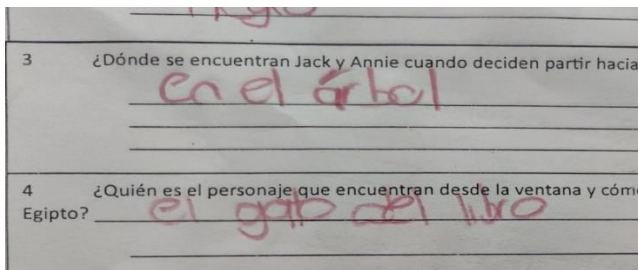 3 ¿Dónde se encuentran Jack y Annie cuando deciden partir hacia
en el árbol
4 ¿Quién es el personaje que encuentran desde la ventana y cóm
Egipto? el gato del libro